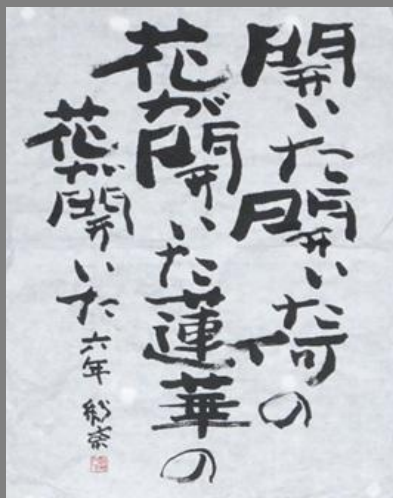 開いた開いた何の
花が開いた蓮華の
花が開いた 六年